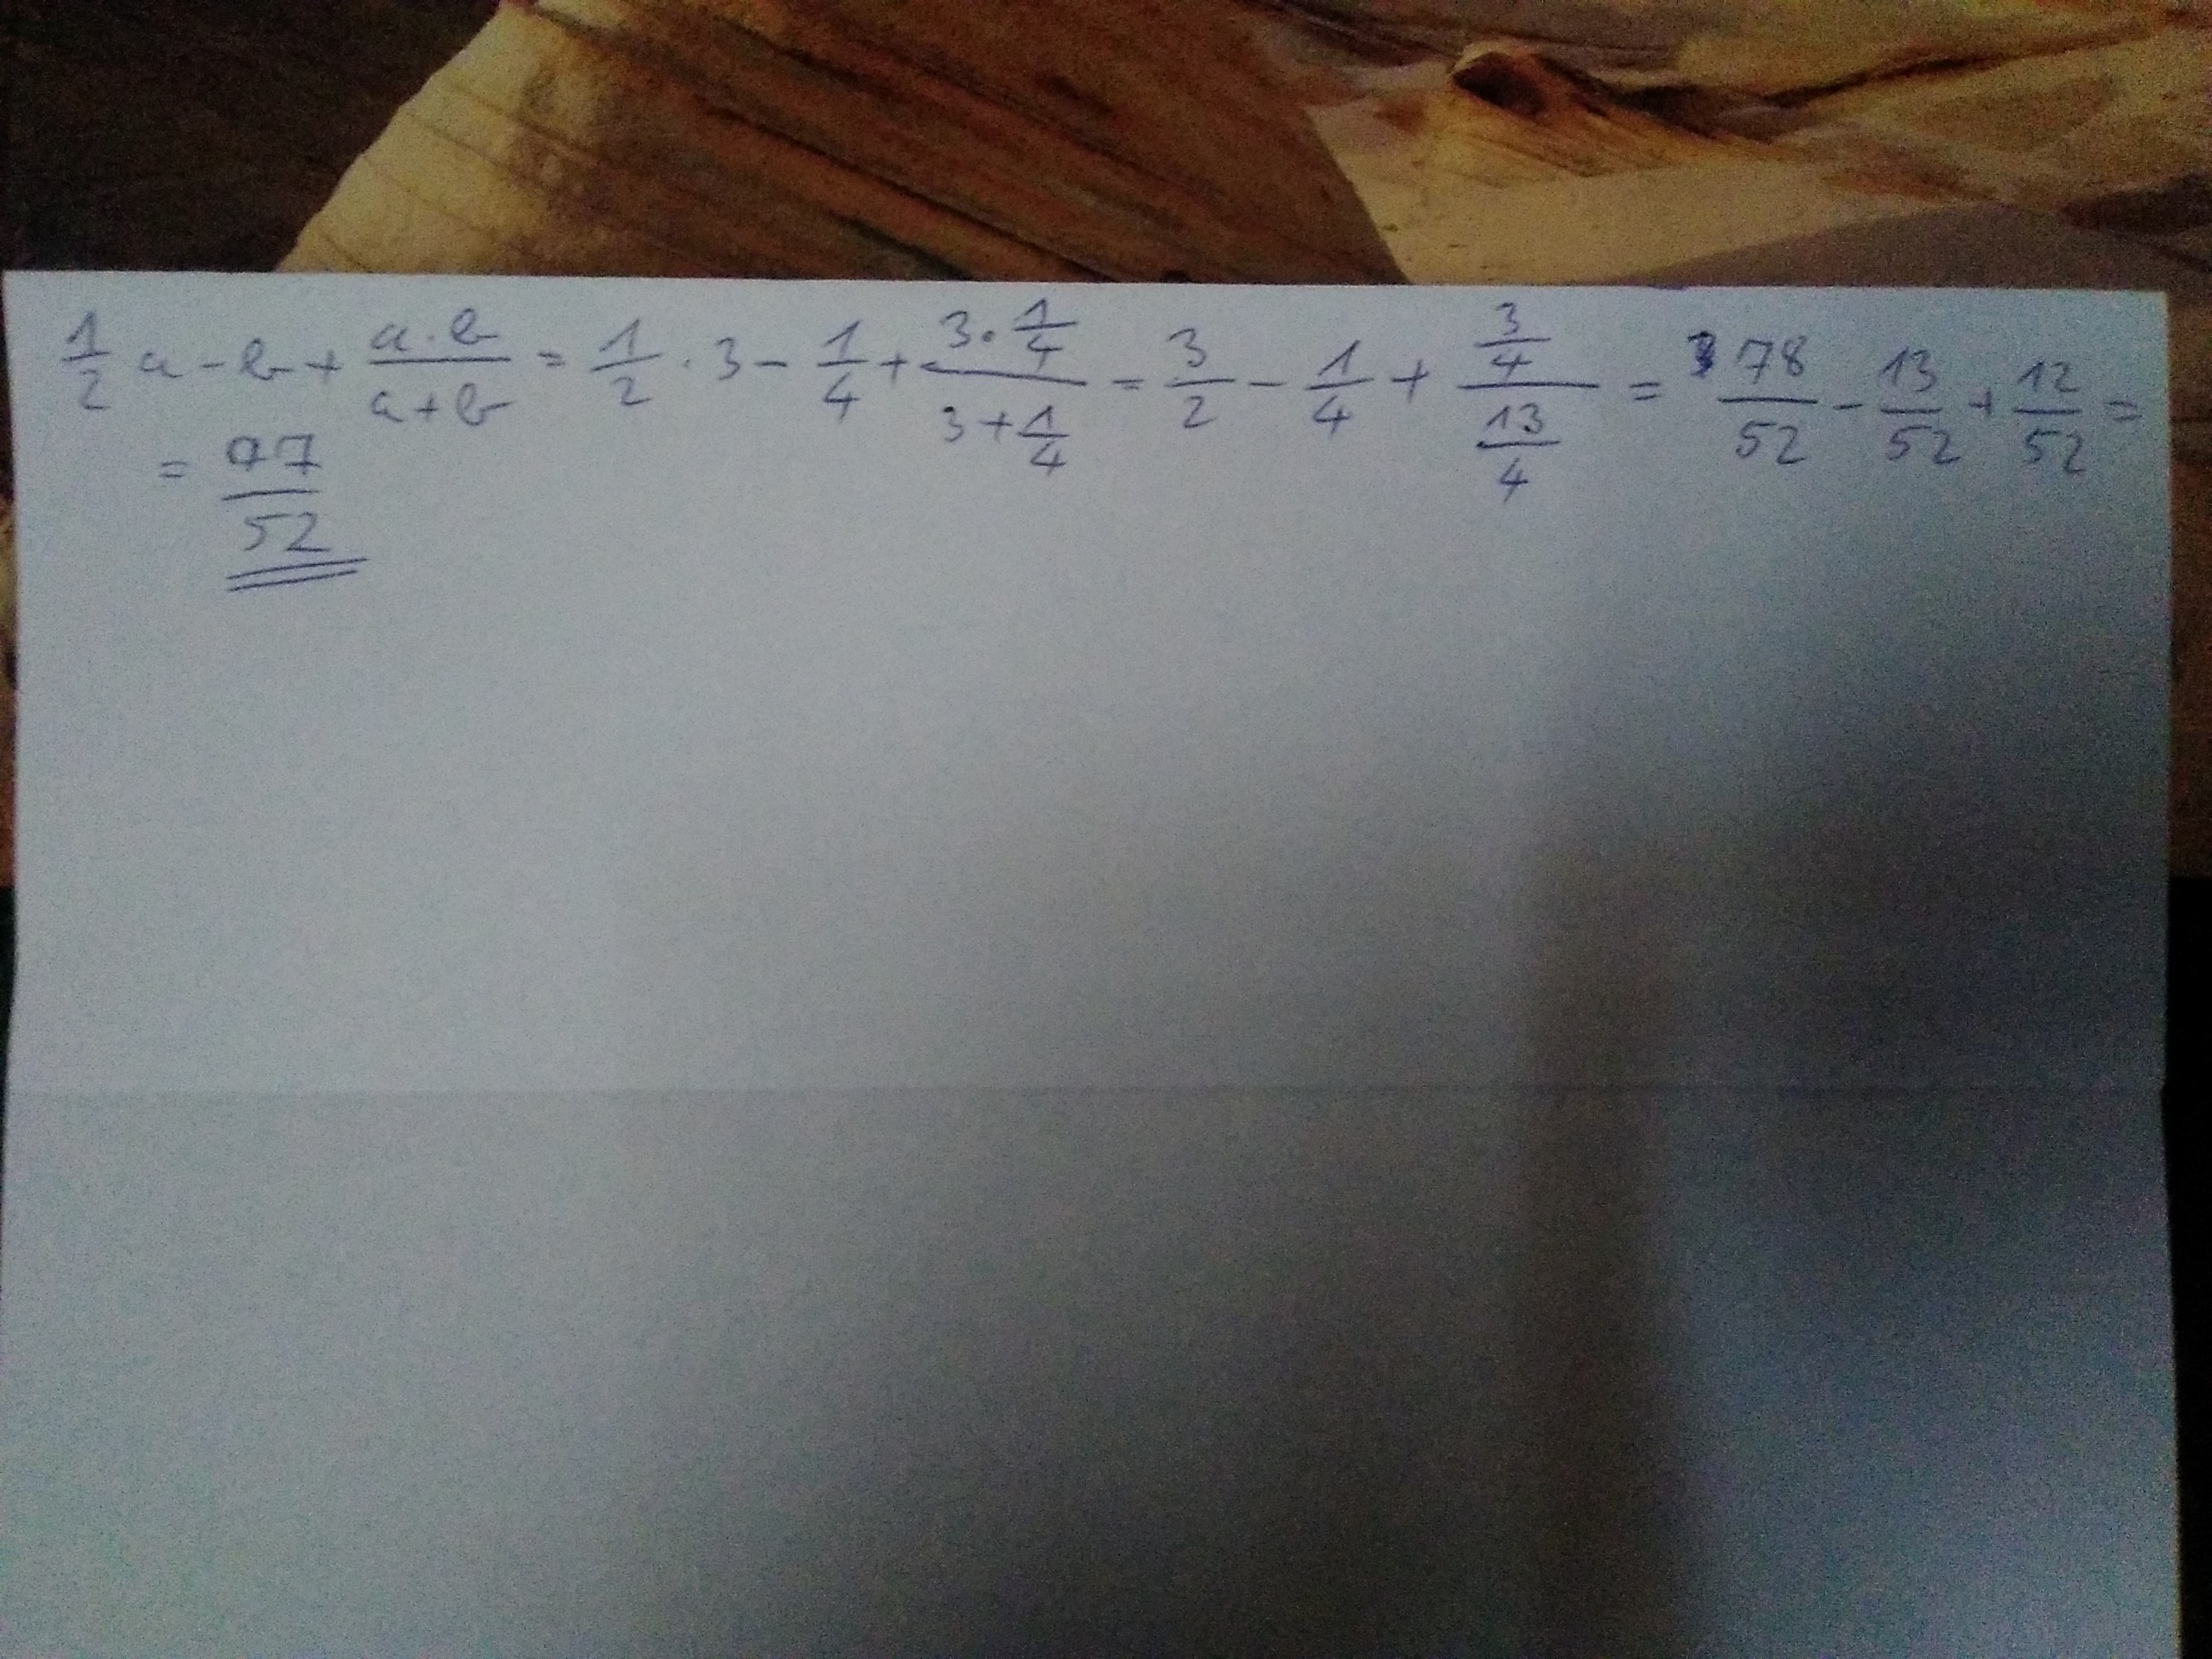 1/2 a - b + (a · b)/(a + b) = 1/2 · 3 - 1/4 + (3 · 1/4)/(3 + 1/4) = 3/2 - 1/4 + (3/4)/(13/4) = 78/52 - 13/52 + 12/52 =
= 77/52